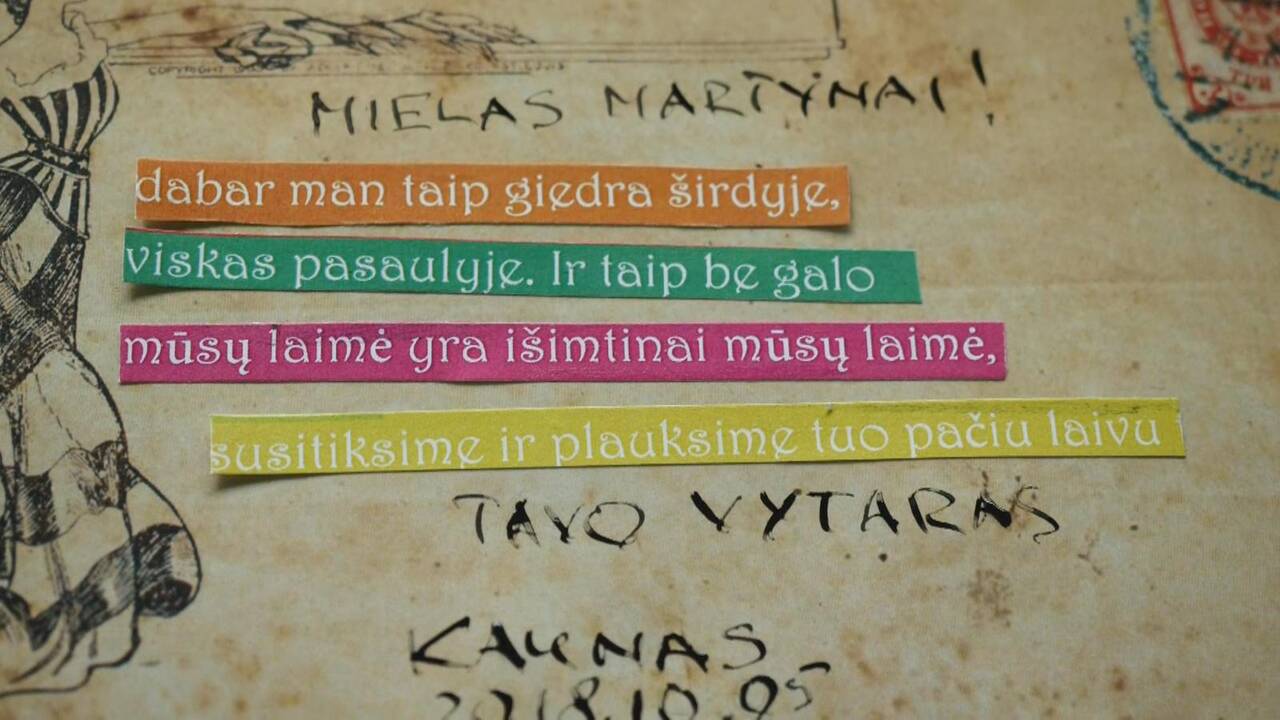 COPYRIGHT
MIELAS MARTYNAI!
dabar man taip giedra širdyje,
viskas pasaulyje. Ir taip be galo
mūsų laimė yra išimtinai mūsų laimė,
susitiksime ir plauksime tuo pačiu laivu
TAVO VYTARAS
KAUNAS
2018.10.05